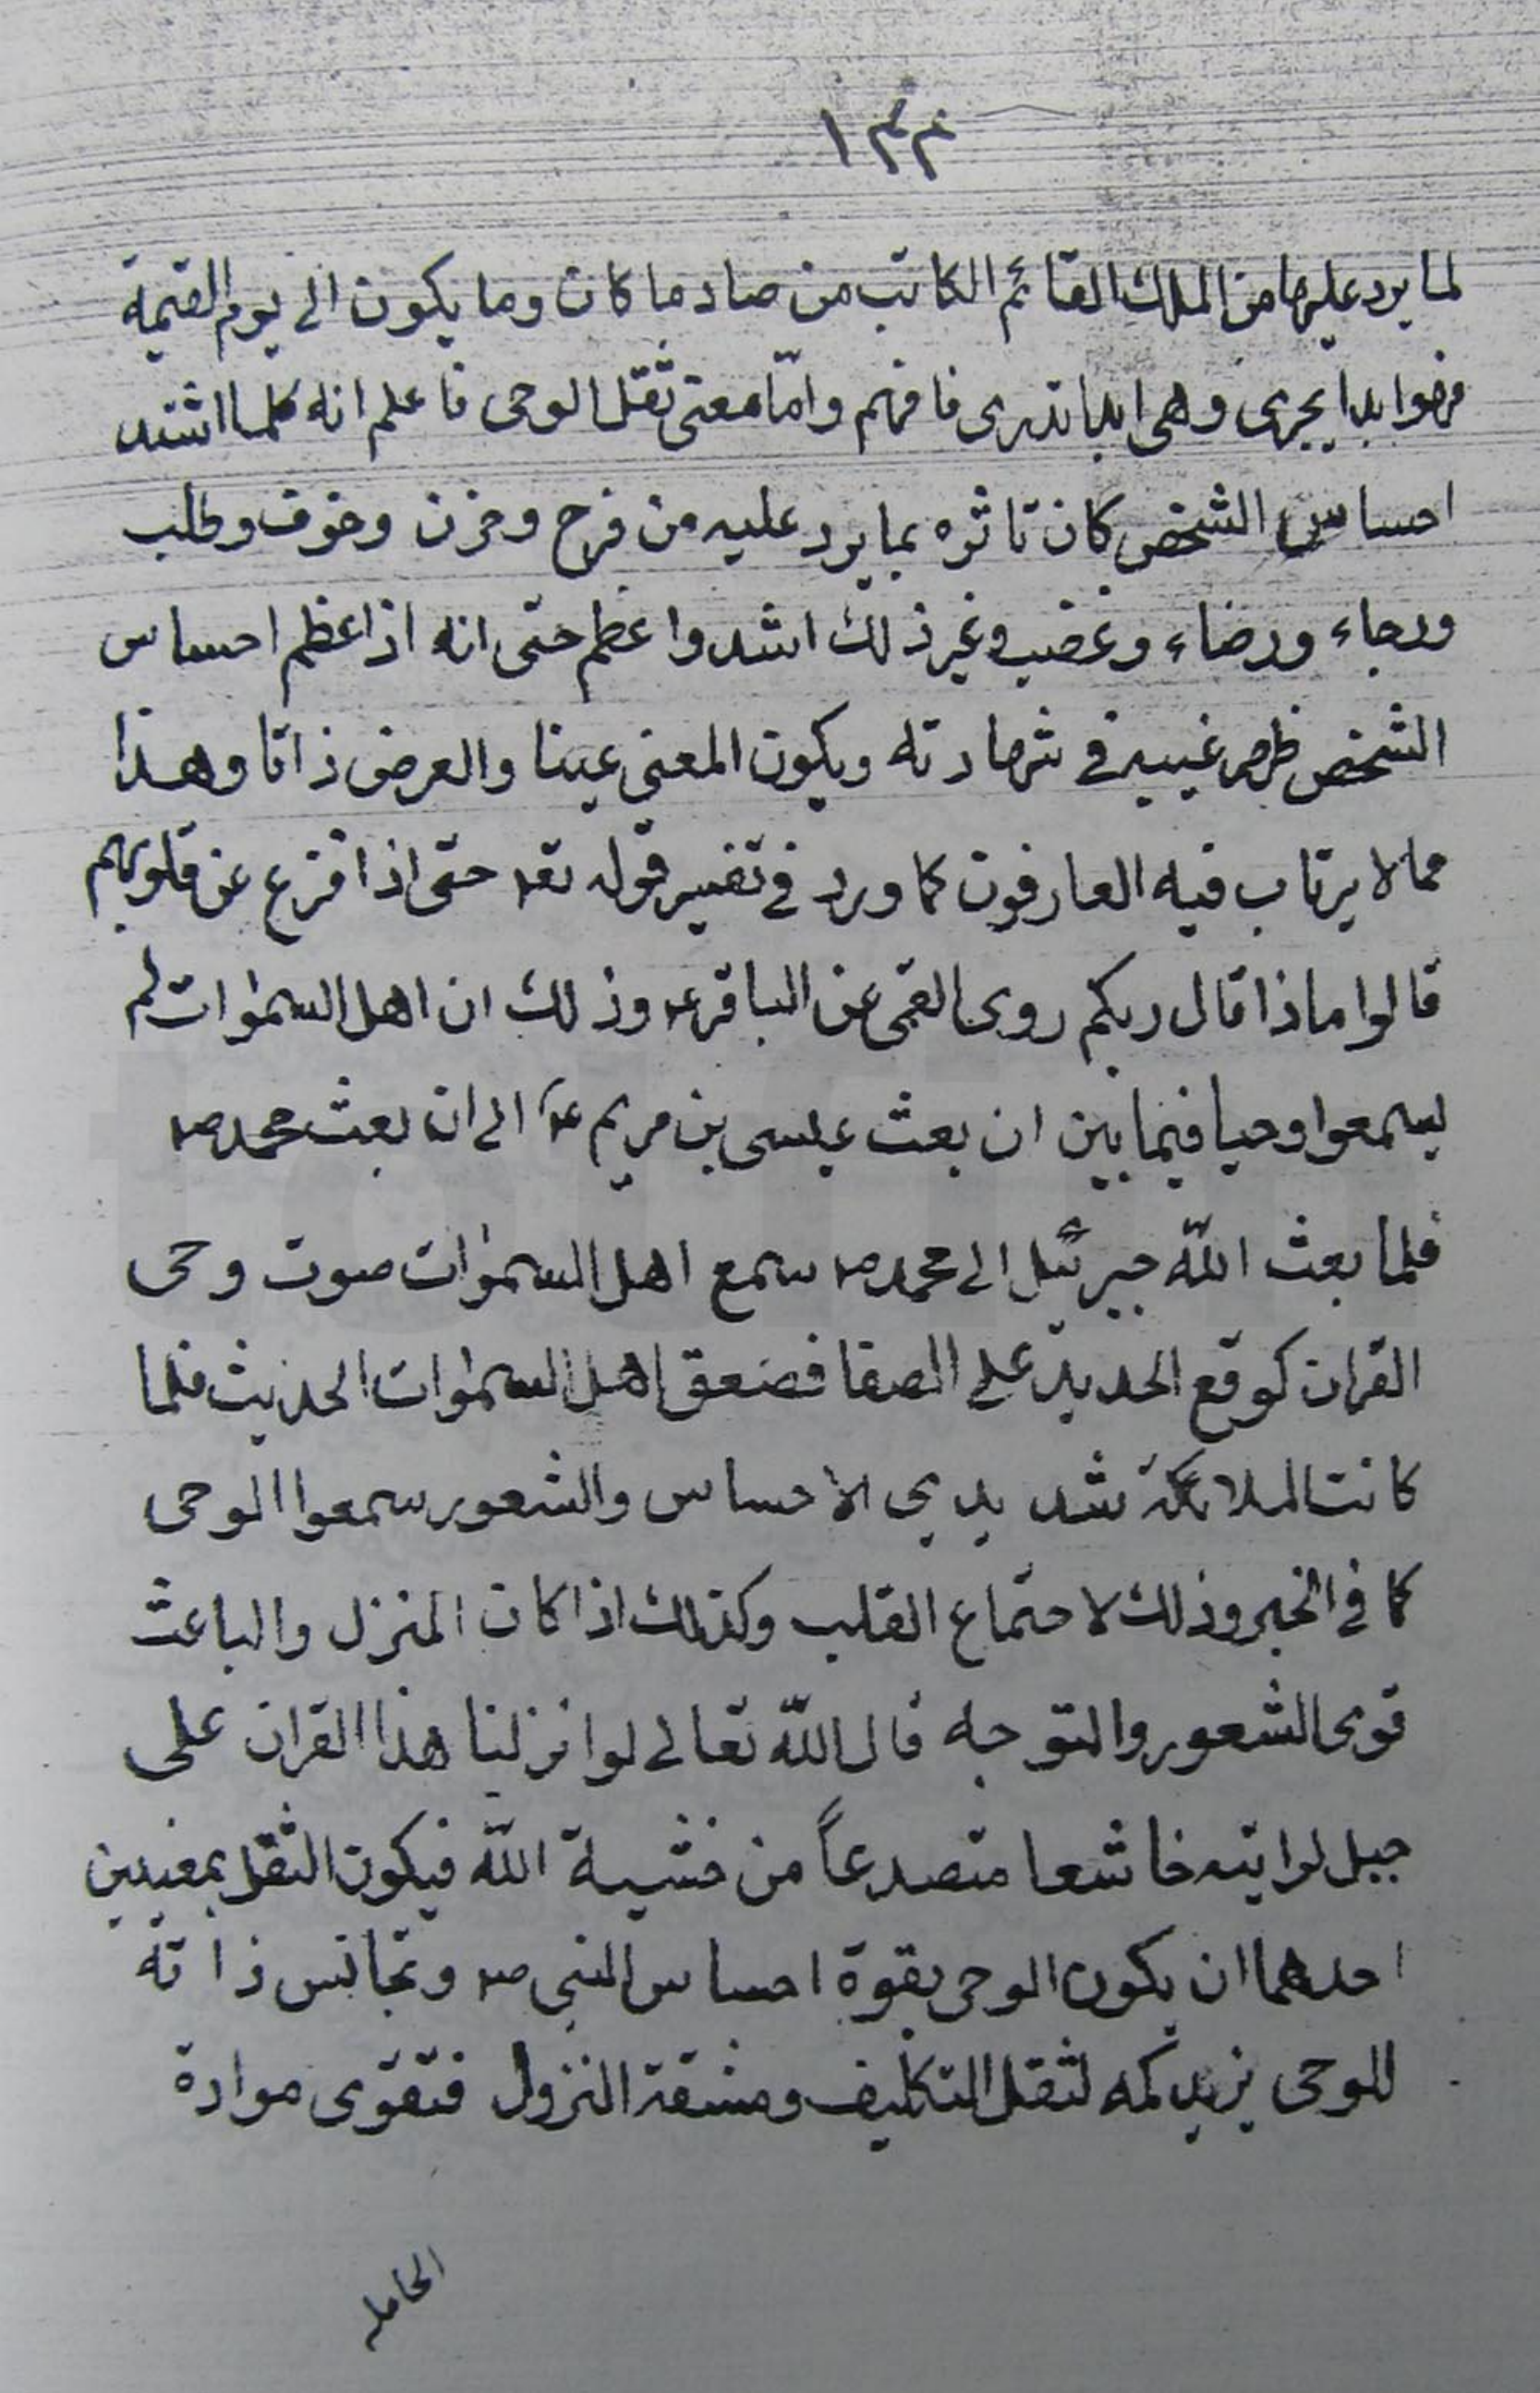 ١٣٣
لما يرد عليها من الملك القائم الكاتب من صاد ما كان وما يكون الى يوم القيمة
فهو ابدا يجرى وهى ابدا تدرى فافهم وامّا معنى ثقل الوحى فاعلم انه كلما اشتد
احساس الشخص كان تاثره بما يرد عليه من فرح وحزن وخوف وطلب
ورجاء ورضاء وغضب وغير ذلك اشد واعظم حتى انه اذا عظم احساس
الشخص ظهر غيبه فى شهادته ويكون المعنى عينا والعرض ذاتا وهذا
مما لا يرتاب فيه العارفون كما ورد فى تفسير قوله تعه حتى اذا فزع عن قلوبهم
قالوا ماذا قال ربكم روى القمى عن الباقر ع وذلك ان اهل السموات لم
يسمعوا وحيا فيما بين ان بعث عيسى بن مريم ع الى ان بعث محمد ص
فلما بعث اللّه جبرئيل الى محمد ص سمع اهل السموات صوت وحى
القران كوقع الحديد على الصفا فصعق اهل السموات الحديث فلما
كانت الملائكة شديدى الاحساس والشعور سمعوا الوحى
كما فى الخبر وذلك لاجتماع القلب وكذلك اذا كان المنزل والباعث
قوى الشعور والتوجه قال اللّه تعالى لو انزلنا هذا القران على
جبل لرايته خاشعا متصدعاً من خشية اللّه فيكون الثقل بمعنيين
احدهما ان يكون الوحى بقوة احساس النبى ص وتجانس ذاته
للوحى يزيد كمه لثقل التكليف ومشقة النزول فتقوى موادة
الحامل